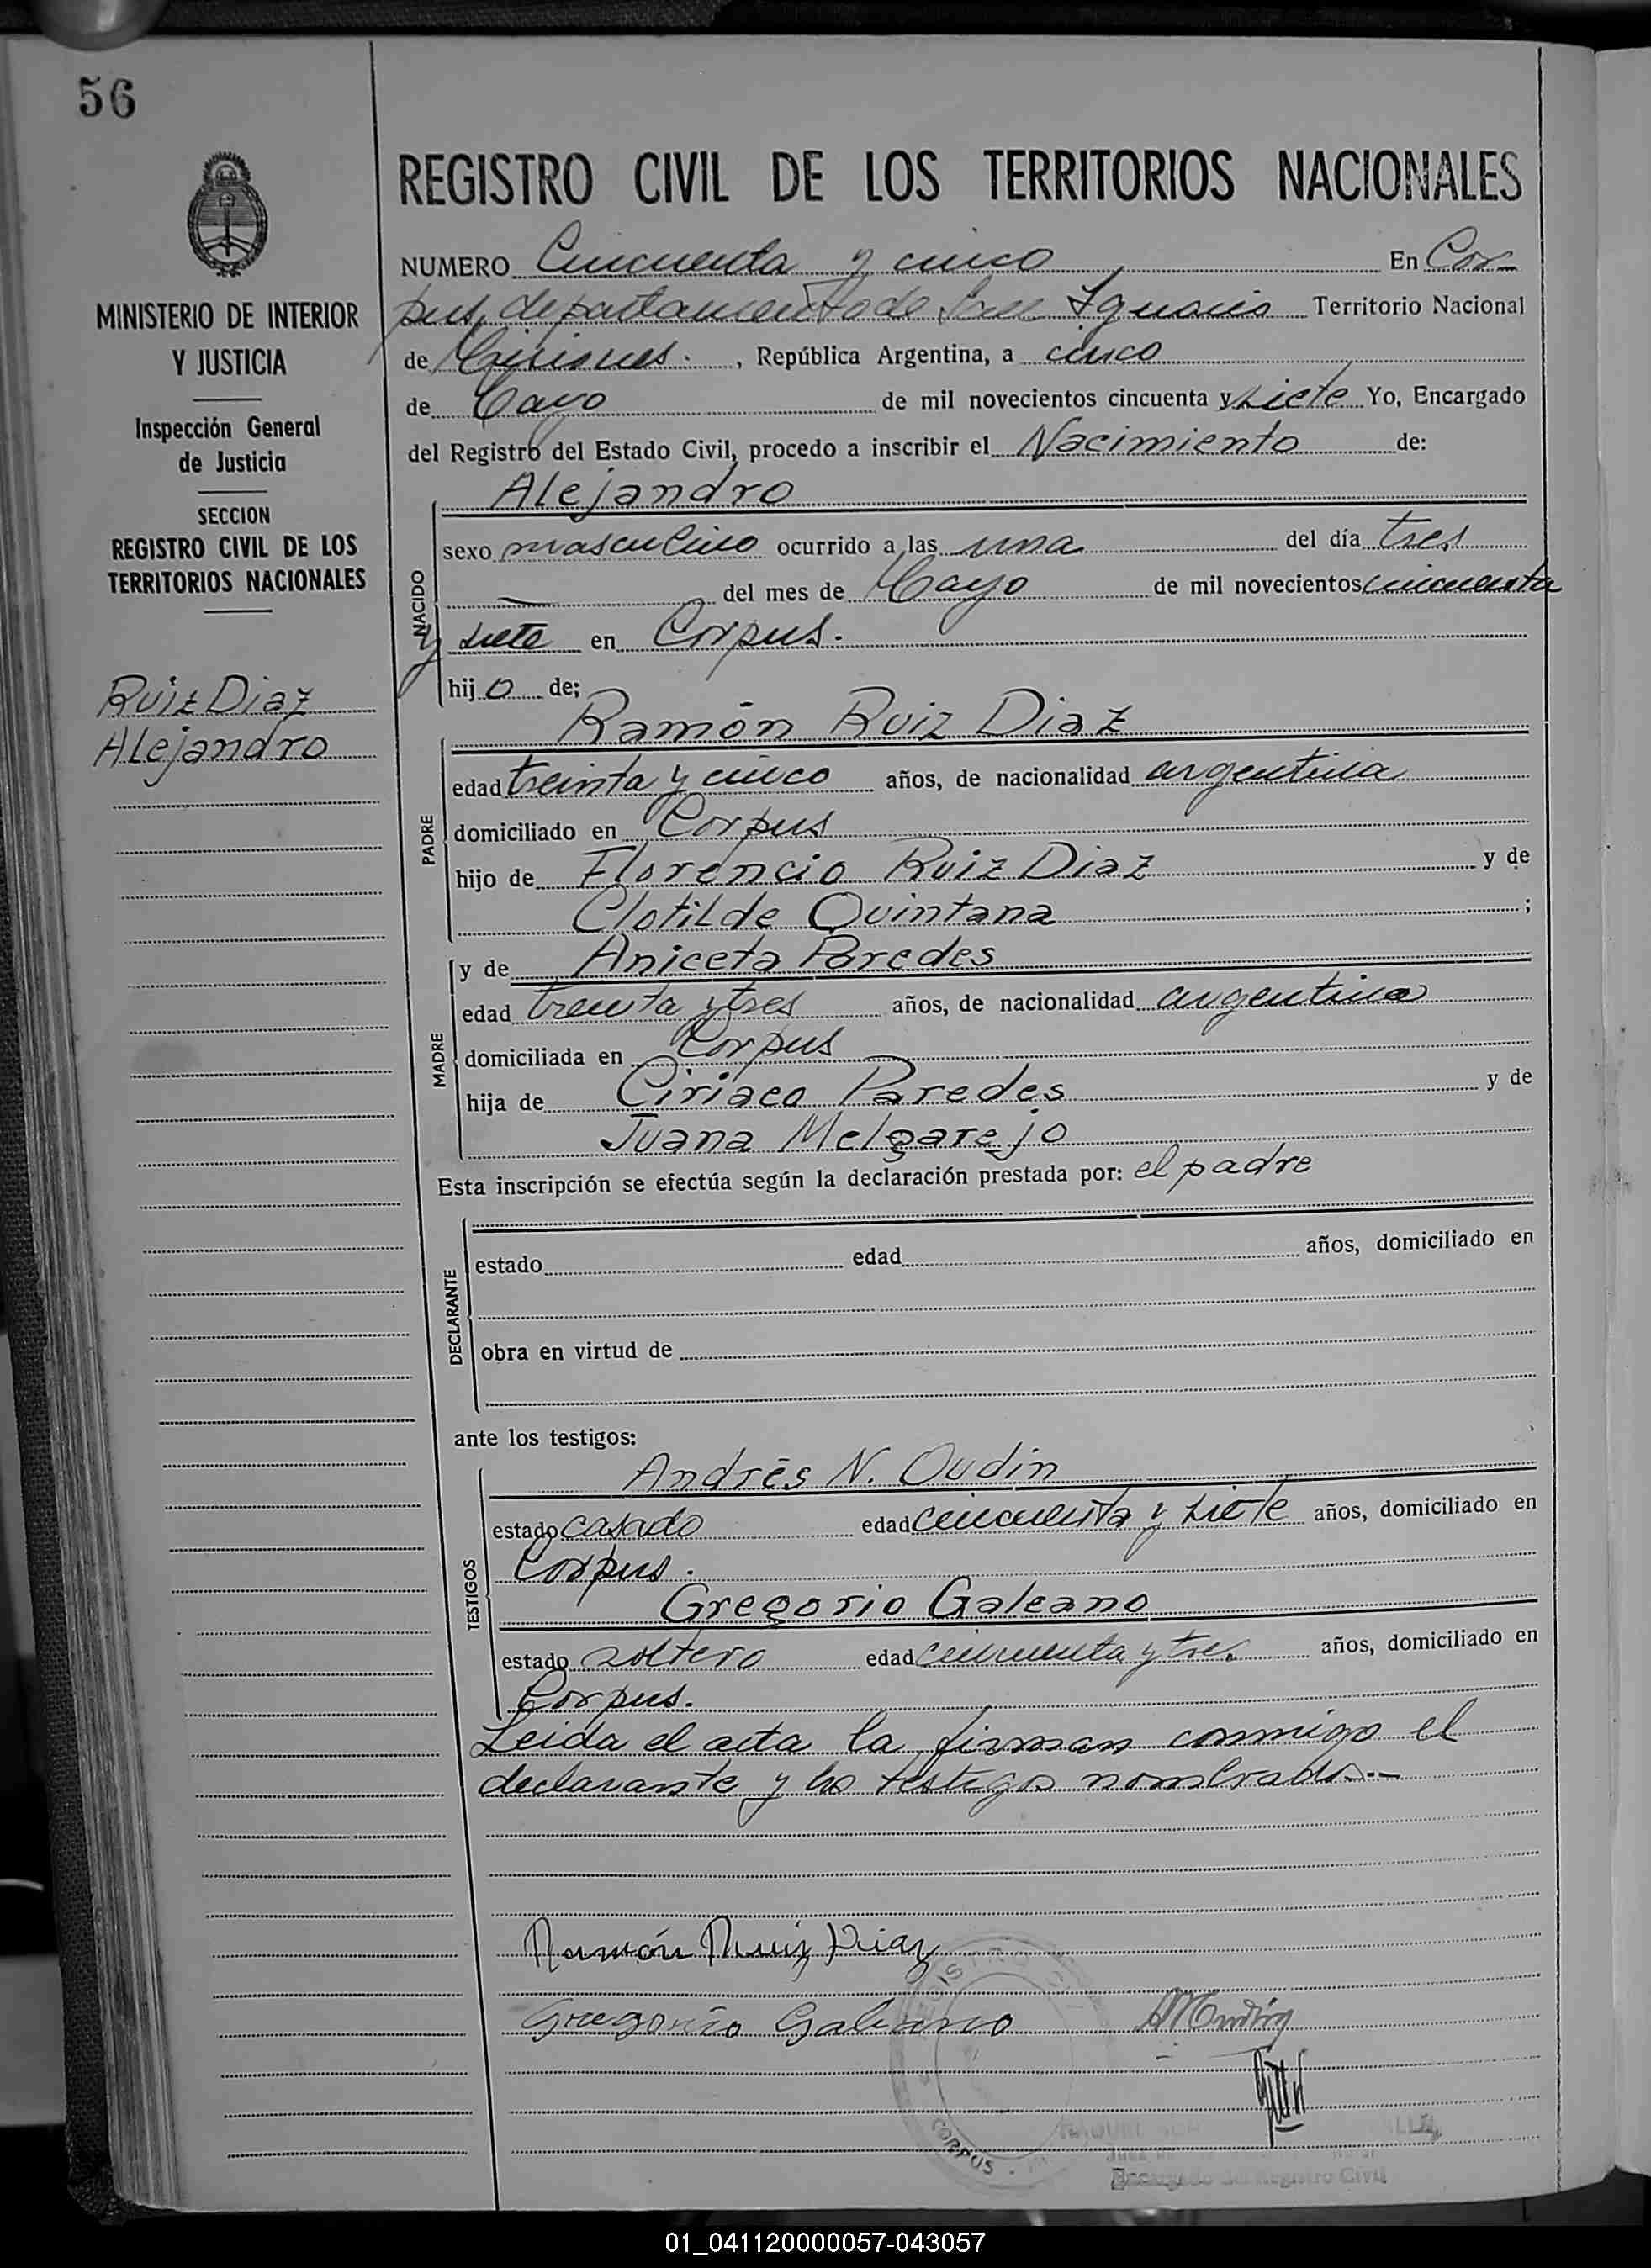 56
REGISTRO CIVIL DE LOS TERRITORIOS NACIONALES
MINISTERIO DE INTERIOR
Y JUSTICIA
Inspección General
de Justicia
SECCION
REGISTRO CIVIL DE LOS
TERRITORIOS NACIONALES
Ruiz Diaz
Alejandro
NUMERO Cincuenta y cinco En Cor
pus, departamento de San Ignacio Territorio Nacional
de Misiones. , República Argentina, a cinco
de Mayo de mil novecientos cincuenta y siete Yo, Encargado
del Registro del Estado Civil, procedo a inscribir el Nacimiento de:
Alejandro
NACIDO
sexo masculino ocurrido a las una del día tres
del mes de Mayo de mil novecientos cincuenta
y siete en Corpus.
hij o de;
Ramón Ruiz Diaz
PADRE
edad treinta y cinco años, de nacionalidad argentina
domiciliado en Corpus
hijo de Florencio Ruiz Diaz y de
Clotilde Quintana ;
y de Aniceta Paredes
MADRE
edad treinta y tres años, de nacionalidad argentina
domiciliada en Corpus
hija de Ciriaco Paredes y de
Juana Melgarejo
Esta inscripción se efectúa según la declaración prestada por: el padre
DECLARANTE
estado edad años, domiciliado en
obra en virtud de
ante los testigos:
Andrés N. Oudin
TESTIGOS
estado casado edad cincuenta y siete años, domiciliado en
Corpus.
Gregorio Galeano
estado soltero edad cincuenta y tres años, domiciliado en
Corpus.
Leida el acta la firman conmigo el
declarante y los testigos nombrados.-
Ramón Ruiz Diaz
Gregorio Galeano ANOudin
REGISTRO CIVIL
CORPUS
Encargado del Registro Civil
01_041120000057-043057